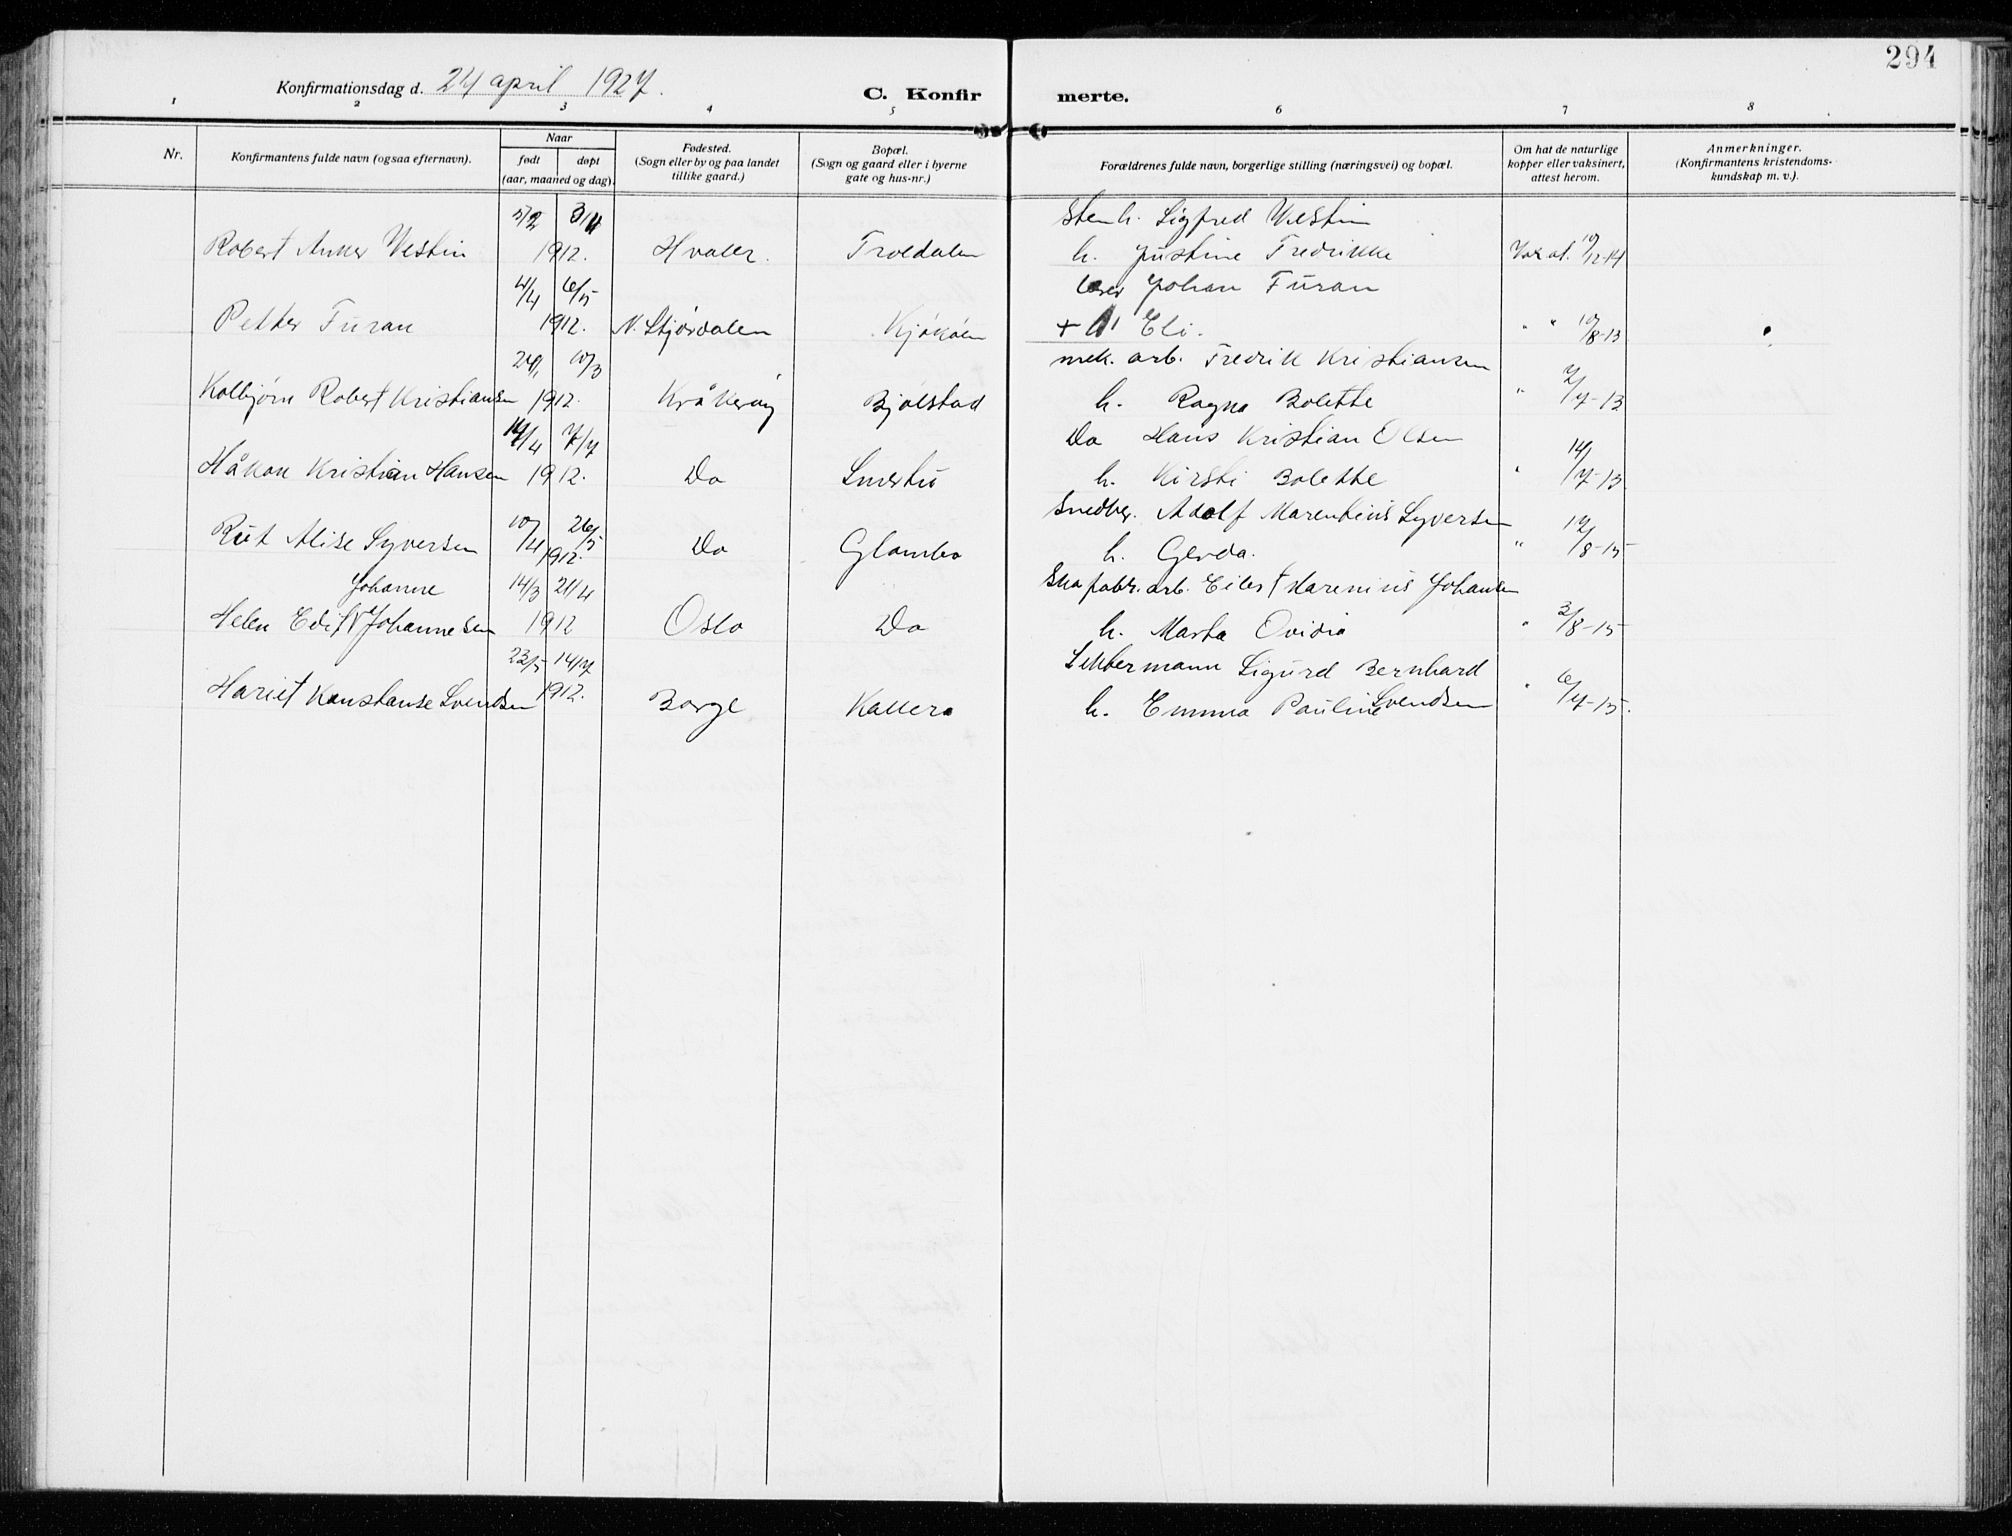 294
Konfirmationsdag d. 24 april 1927.
C. Konfirmerte.
1 2 3 4 5 6 7 8
Nr.
Konfirmantens fulde navn (ogsaa efternavn).
Naar
født døpt
(aar, maaned og dag).
Fødested.
(Sogn eller by og paa landet
tillike gaard.)
Bopæl.
(Sogn og gaard eller i byerne
gate og hus-nr.)
Forældrenes fulde navn, borgerlige stilling (næringsvei) og bopæl.
Om hat de naturlige
kopper eller vaksinert,
attest herom.
Anmerkninger.
(Konfirmantens kristendoms-
kundskap m. v.).
5/2 3/4 Stenh. Sigfred Vestin
Robert Anker Vestin 1912. Hvaler. Troldalen h. Justine Fredrikke Vak. at. 10/12-14
4/4 6/5 Johan Furan
Petter Furan 1912. N. Stjørdalen Kjøkøen + h Eli. " " 10/8-13
24/1 10/3 mek. arb. Fredrik Kristiansen
Kolbjørn Robert Kristiansen 1912. Kråkerøy Bjølstad h. Ragna Bolette " 2/7-13
14/4 7/7 Do Hans Kristian Olsen
Håkon Kristian Hansen 1912. Do Smertu h. Kirsti Bolette " 14/7-13
10/4 26/5 Snedker. Adolf Marentius Syversen
Rut Alise Syversen 1912. Do Glombo h. Gerda. " 12/8-15
Johanne 14/3 21/4 Skofabr. arb. Eilert Karenius Johansen
Helen Edit V Johannesen 1912 Oslo Do h. Marta Ovidia " 3/8-15
23/5 14/7 Sigurd Bernhard
Hariet Konstanse Svendsen 1912. Borge Kallera h. Emma Pauline Svendsen " 6/7-15.